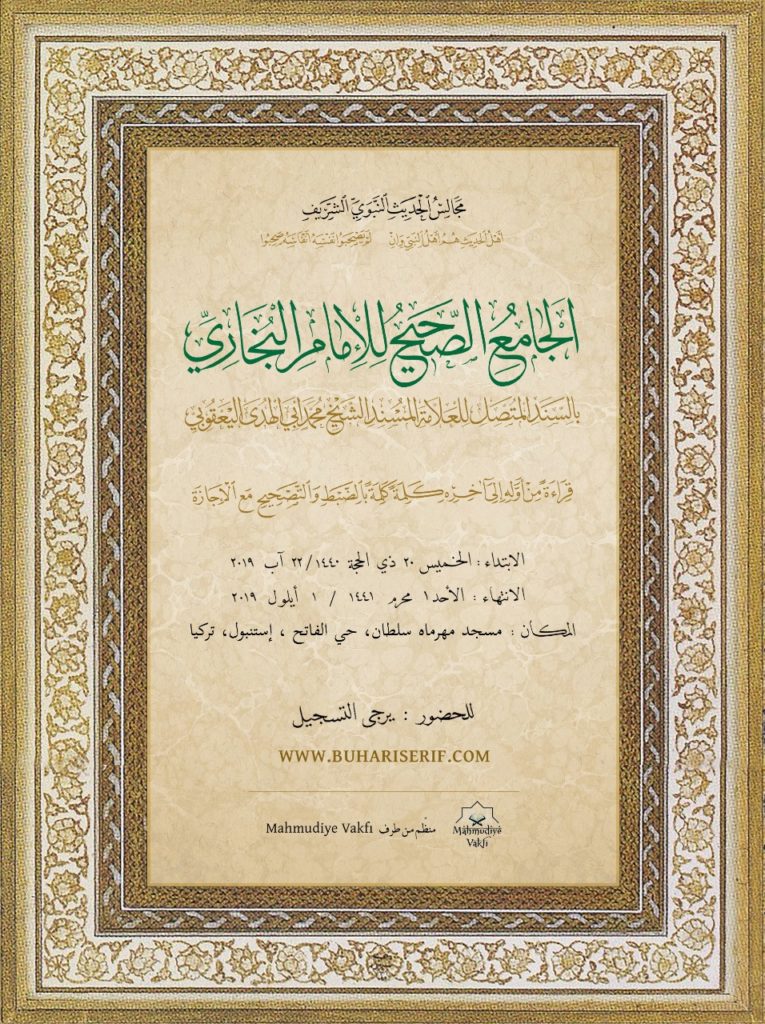 مَجَالِسُ الْحَدِيثِ النَّبَوِيِّ الشَّرِيفِ
أَهْلُ الْحَدِيثِ هُمُ أَهْلُ النَّبِيِّ وَإِنْ لَمْ يَصْحَبُوا نَفْسَهُ أَنْفَاسَهُ صَحِبُوا
الْجَامِعُ الصَّحِيحُ لِلْإِمَامِ الْبُخَارِيِّ
بِالسَّنَدِ الْمُتَّصِلِ لِلْعَلَّامَةِ الْمُسْنِدِ الشَّيْخِ مُحَمَّد أَبِي الْهُدَى الْيَعْقُوبِي
قِرَاءَةً مِنْ أَوَّلِهِ إِلَى آخِرِهِ كَلِمَةً كَلِمَةً بِالضَّبْطِ وَالتَّصْحِيحِ مَعَ الْإِجَازَةِ
الابتداء : الخميس ٢٠ ذي الحجة ١٤٤٠/ ٢٢ آب ٢٠١٩
الانتهاء : الأحد ١ محرم ١٤٤١ / ١ أيلول ٢٠١٩
المكان : مسجد مهرماه سلطان، حي الفاتح ، إستنبول، تركيا
للحضور : يرجى التسجيل
WWW.BUHARISERIF.COM
منظم من طرف Mahmudiye Vakfı
Mahmudiye
Vakfı